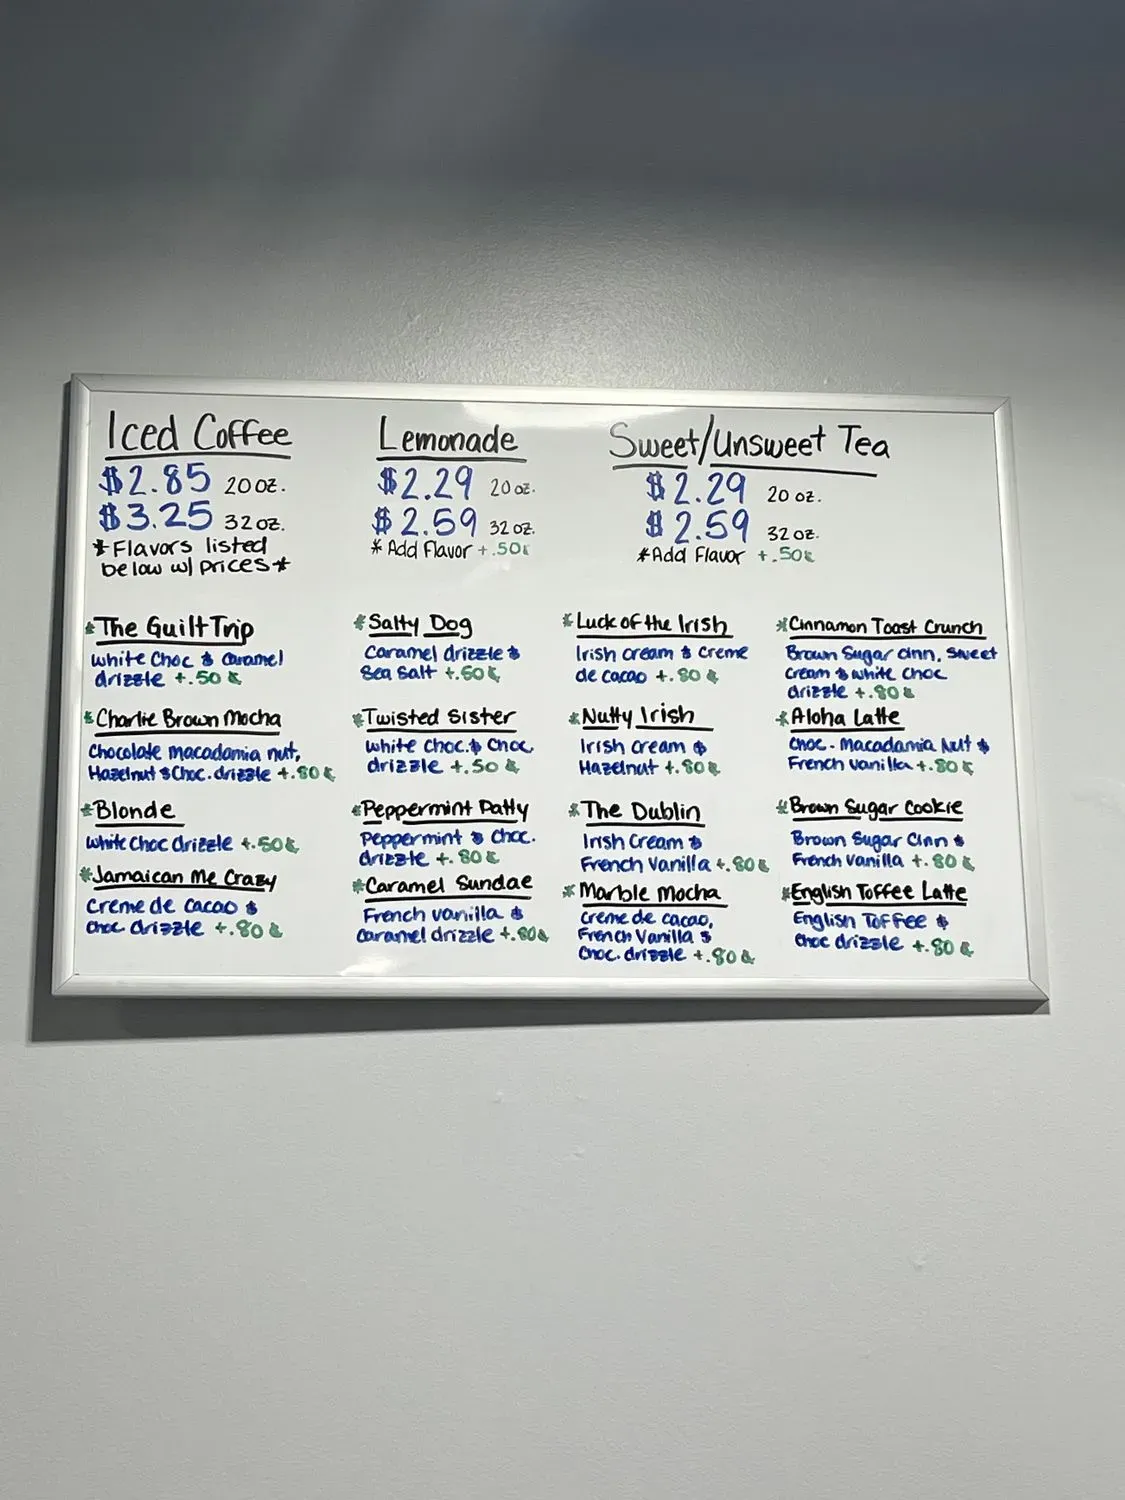 Iced Coffee
$2.85 20 oz.
$3.25 32 oz.
*Flavors listed
below w/ prices*
Lemonade
$2.29 20 oz.
$2.59 32 oz.
*Add Flavor +.50¢
Sweet/Unsweet Tea
$2.29 20 oz.
$2.59 32 oz.
*Add Flavor +.50¢
*The Guilt Trip
White Choc & Caramel
drizzle +.50¢
*Charlie Brown Mocha
Chocolate macadamia nut,
Hazelnut & Choc. drizzle +.80¢
*Blonde
White Choc drizzle +.50¢
*Jamaican Me Crazy
Creme de cacao &
choc drizzle +.80¢
*Salty Dog
Caramel drizzle &
Sea Salt +.50¢
*Twisted Sister
White Choc. & Choc
drizzle +.50¢
*Peppermint Patty
Peppermint & Choc.
drizzle +.80¢
*Caramel Sundae
French vanilla &
caramel drizzle +.80¢
*Luck of the Irish
Irish cream & creme
de cacao +.80¢
*Nutty Irish
Irish cream &
Hazelnut +.80¢
*The Dublin
Irish Cream &
French Vanilla +.80¢
*Marble Mocha
Creme de cacao,
French Vanilla &
Choc. drizzle +.80¢
*Cinnamon Toast Crunch
Brown Sugar Cinn, Sweet
Cream & White Choc
drizzle +.80¢
*Aloha Latte
Choc. Macadamia Nut &
French vanilla +.80¢
*Brown Sugar Cookie
Brown Sugar Cinn &
French Vanilla +.80¢
*English Toffee Latte
English Toffee &
Choc drizzle +.80¢